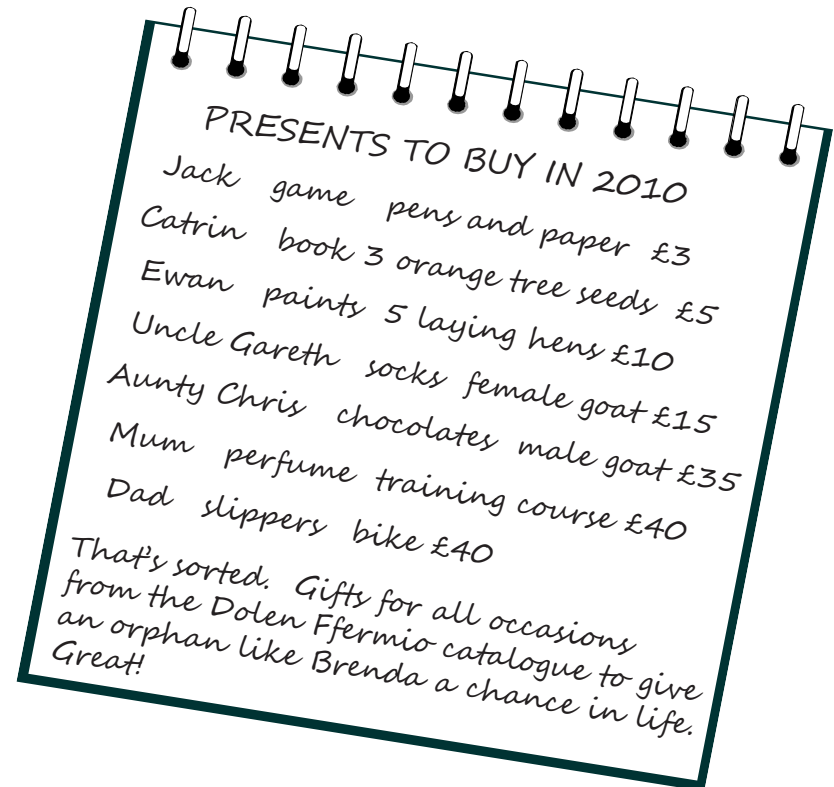 PRESENTS TO BUY IN 2010
Jack game pens and paper £3
Catrin book 3 orange tree seeds £5
Ewan paints 5 laying hens £10
Uncle Gareth socks female goat £15
Aunty Chris chocolates male goat £35
Mum perfume training course £40
Dad slippers bike £40
That's sorted. Gifts for all occasions
from the Dolen Ffermio catalogue to give
an orphan like Brenda a chance in life.
Great!